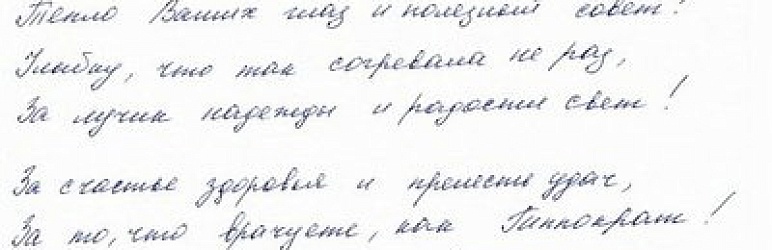 Тепло Ваших глаз и полезный совет!
Улыбку, что так согревала не раз,
За лучик надежды и радости свет!
За счастье здоровья и прелесть удач,
За то, что врачуете, как Гиппократ!